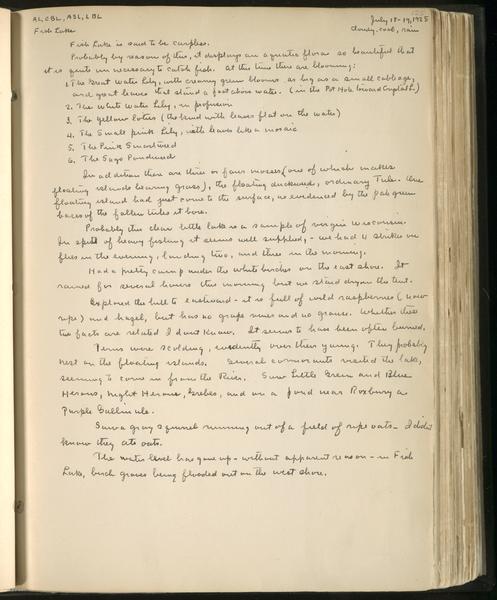 AL, CBL, ASL, LBL
July 18-19, 1925
Fish Lake
Cloudy, cool, rain
Fish Lake is said to be carpless.
Probably by reason of this, it displays an aquatic flora so beautiful that
it is quite unnecessary to catch fish. At this time there are blooming:
1. The Great Water Lily, with creamy green blooms as big as a small cabbage,
and great leaves that stand a foot above water. (in the Pot Hole toward
2. The White Water Lily, in profusion
3. The Yellow Lotus (the kind with leaves flat on the water)
4. The Small pink Lily, with leaves like a mosaic
5. The Pink Smartweed
6. The Sago Pondweed
In addition there are three or four mosses (one of which makes
floating islands bearing grass), the floating duckweed, ordinary Tule. One
floating island had just come to the surface, as evidenced by the pale green
bases of the fallen tules it bore.
Probably this clear little lake is a sample of virgin Wisconsin.
In spite of heavy fishing it seems well supplied, - we had 4 strikes on
flies in the evening, landing two, and three in the morning.
Had a pretty camp under the white birches on the east shore. It
rained for several hours this morning but we stayed dry in the tent.
Explored the hill to eastward - it is full of wild raspberries (now
ripe) and hazel, but has no grape vines and no grouse. Whether these
two facts are related I dont know. It seems to have been often burned.
Terns were scolding, evidently over their young. They probably
nest on the floating islands. Several cormorants visited the lake,
seeming to come in from the River. Saw Little Green and Blue
Herons, Night Herons, Grebes, and on a pond near Roxbury a
Purple Gallinule.
Saw a gray squirrel running out of a field of ripe oats - I didnt
know they ate oats.
The water level has gone up - without apparent reason - in Fish
Lake, birch groves being flooded out on the west shore.